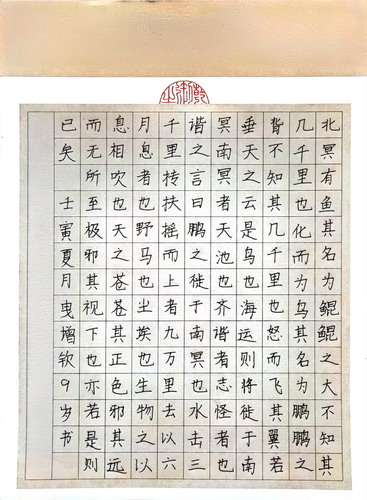 北冥有鱼其名为鲲鲲之大不知其
几千里也化而为鸟其名为鹏鹏之
背不知其几千里也怒而飞其翼若
垂天之云是鸟也海运则将徙于南
冥南冥者天池也齐谐者志怪者也
谐之言曰鹏之徙于南冥也水击三
千里抟扶摇而上者九万里去以六
月息者也野马也尘埃也生物之以
息相吹也天之苍苍其正色邪其远
而无所至极邪其视下也亦若是则
已矣 壬寅夏月曳增钦9岁书